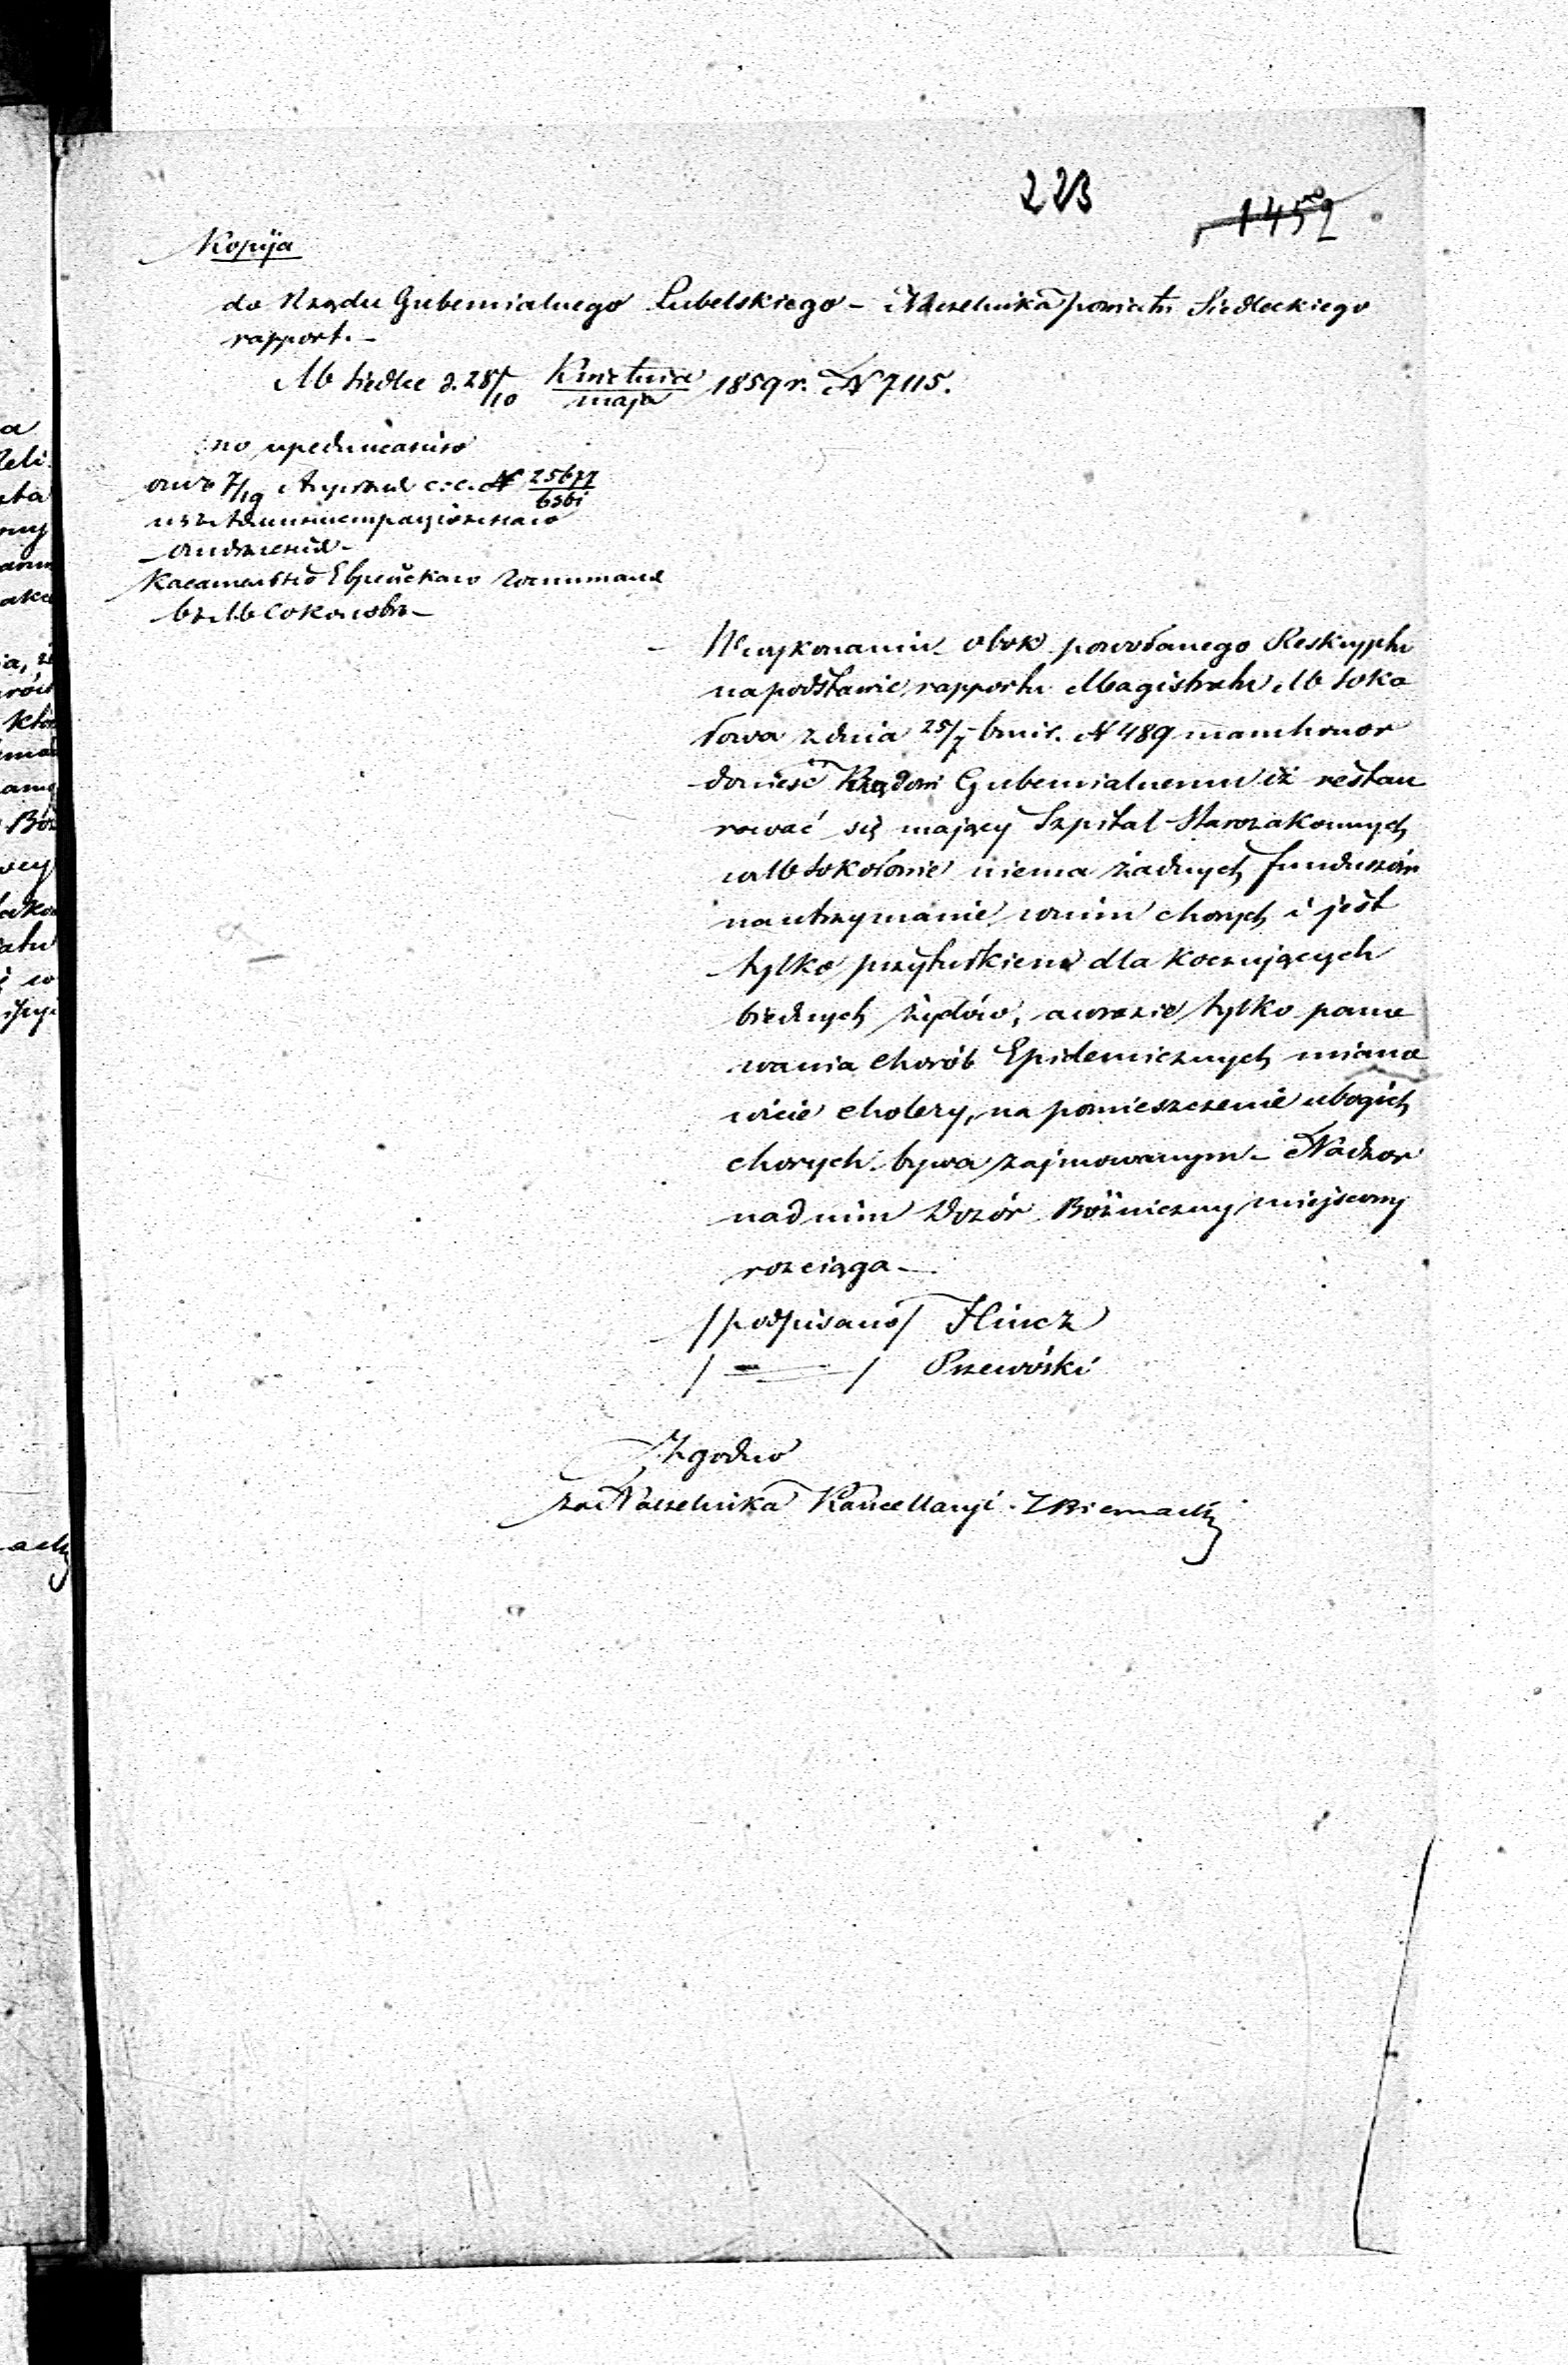 223
1459
Kopija
do Rządu Gubernialnego Lubelskiego – Naczelnika powiatu Siedleckiego
rapport. –
M Siedlce d. 28/10 Kwietnia/maja 1859 r. N 7115.
по предписанию
отъ 7/19 Апреля с: г. N 25677/6361
касательно Еврейскаго
въ М Соколовъ –
– W wykonaniu obok powołanego Reskryptu
na podstawie rapportu Magistratu M Soko
łowa z dnia 25/7 bm i r. N 489 mam honor
donieść Rządowi Gubernialnemu iż restau
rować się mający Szpital Starozakonnych
w M Sokołowie niema żadnych funduszów
na utrzymanie w nim chorych i jest
tylko przytułkiem dla koczujących
biednych żydów, a w razie tylko pano
wania chorób Epidemicznych miano
wicie cholery, na pomieszczenie ubogich
chorych bywa zajmowanym – Nadzor
nad nim Dozór Bóżniczny miejscowy
rozciąga –
/podpisano/ Hincz
/ — / Przewóski
Zgodno
za Naczelnika Kancellaryi Biernacki